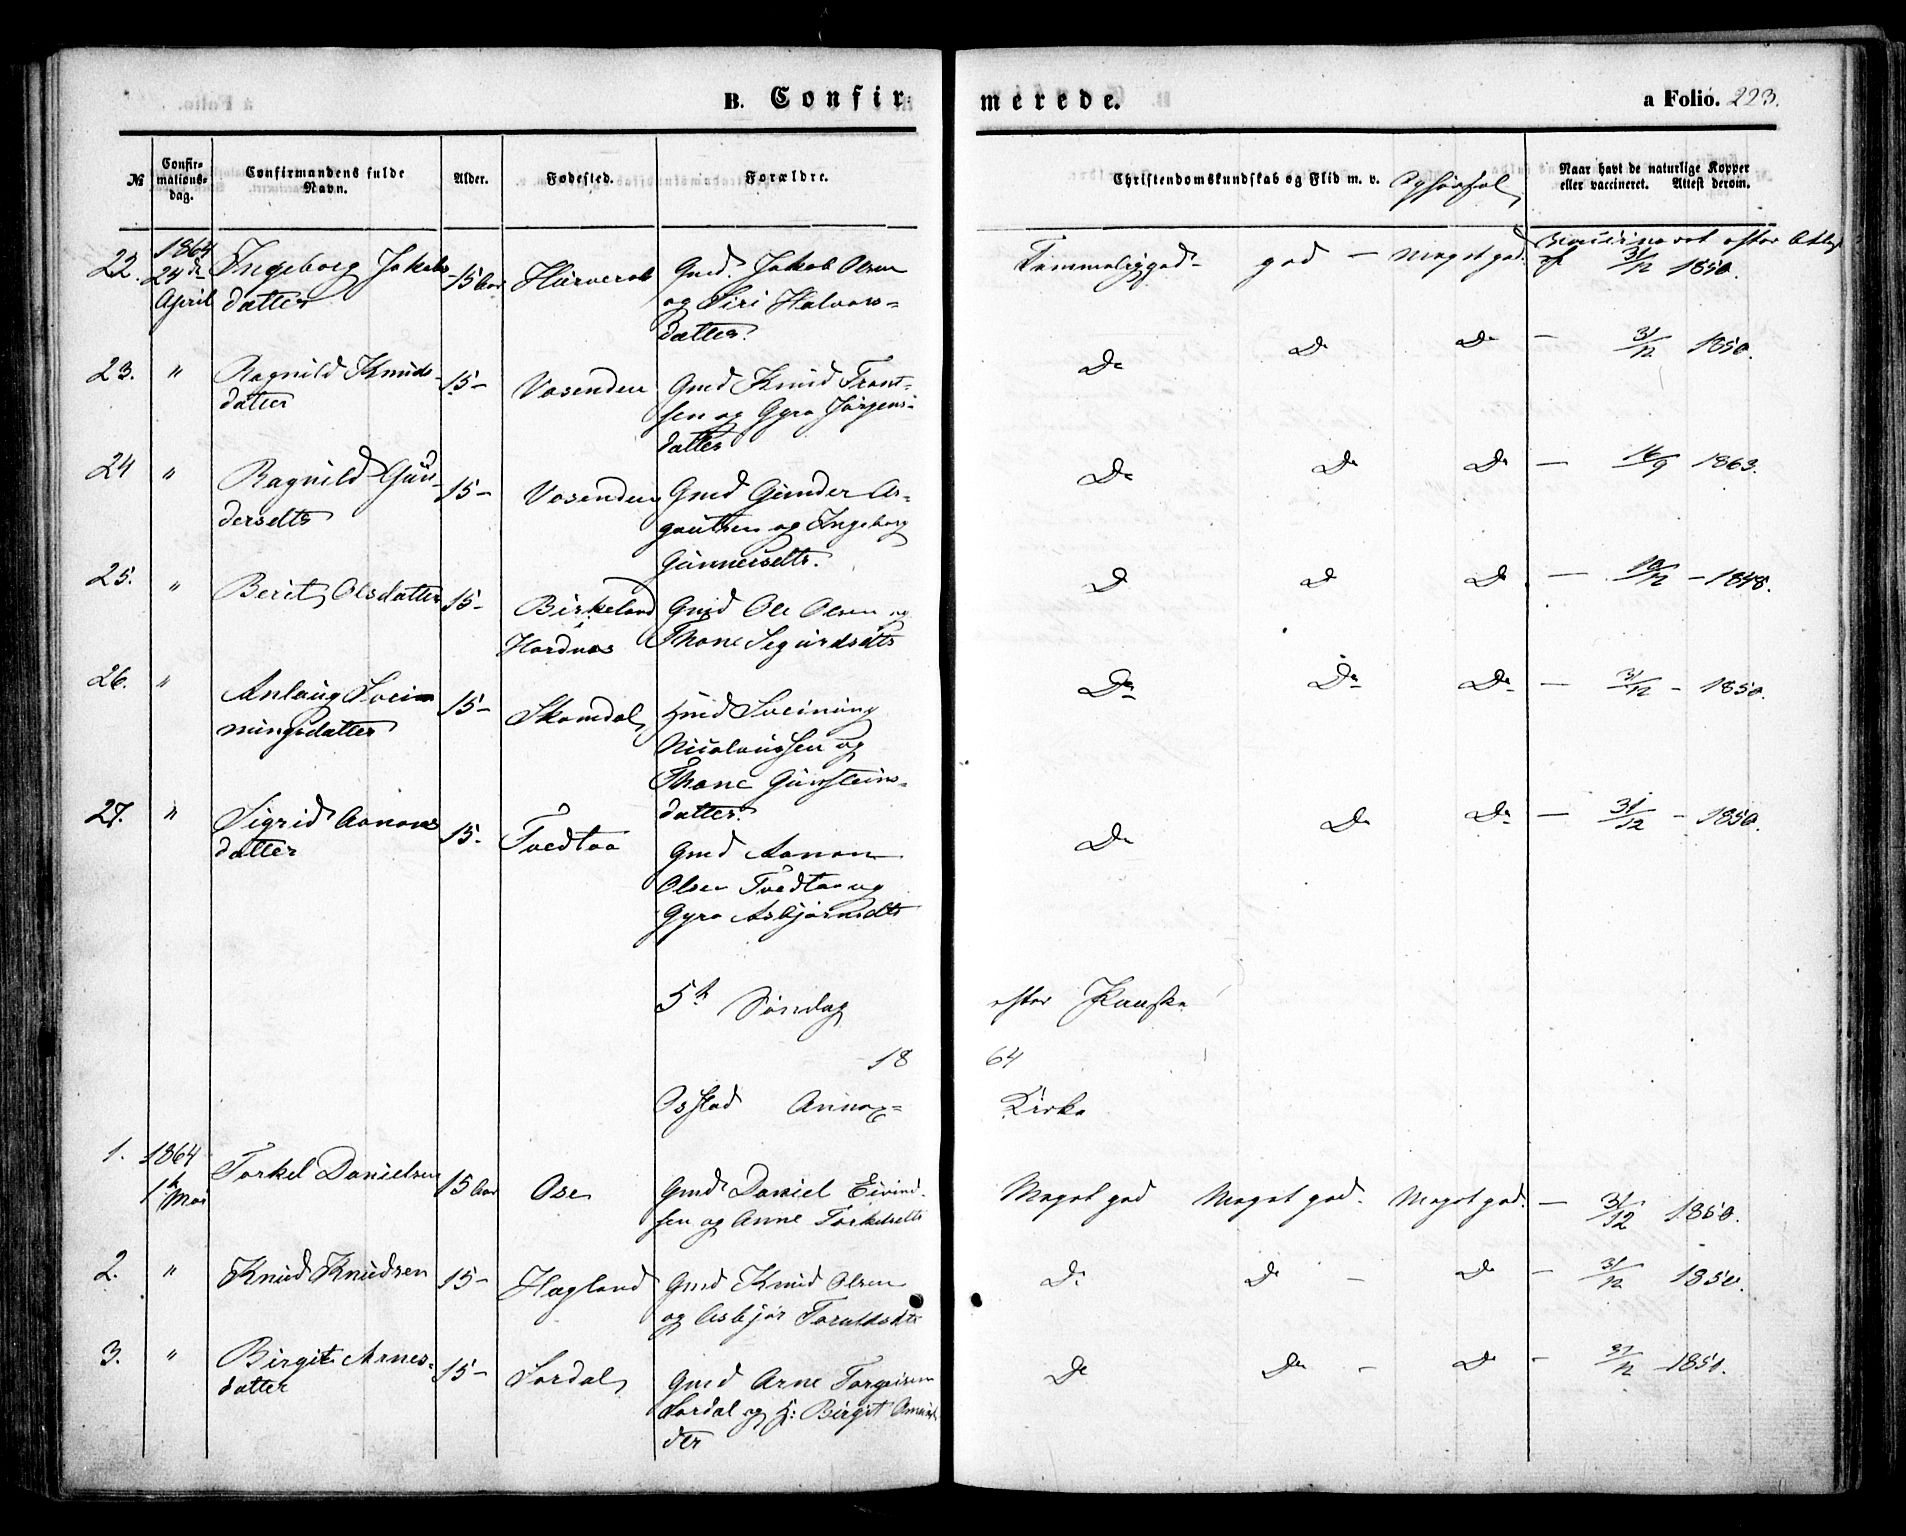 B. Confir-
merede.
a Folio. 223.
№
Confir-
mations-
dag.
Confirmandens fulde
Navn.
Alder.
Fødested.
Forældre.
Christendomskundskab og Flid m. v.
Opførsel
Naar havt de naturlige Kopper
eller vaccineret. Attest derom.
22. 1864
24de
April
Ingeborg Jakobs
datter
15 Aar
Gmd. Jakob Olsen
og Siri Halvors-
datter.
Temmelig god- god - Meget god. Vaccineret efter Attest
af 31/12 1850.
23. " Ragnild Knuds-
datter
15-
Vosenden
Gmd Knud Tront-
sen og Gyro Jørgens-
datter
Do Do Do - 31/12 1850.
24 " Ragnild Gun-
derseltr
15-
Vosenden
Gmd Gunder As-
goutsen og Ingeborg
Gunnerseltr.
Do Do Do - 16/9 1863.
25. " Berit Olsdatter
15-
Birkeland
Hordnes
Gmd Ole Olsen og
Thone Segurdsdtr
D D D - 10/12 - 1848.
26. " Anlaug Svein
ningsdatter
15-
Skomdal
Hmd Sveinung
Nicolaussen og
Thone Gunsteins-
datter.
Do Do Do - 31/12 - 1850.
27. " Sigrid Aanons
datter
15.
Tvedtoa
Gmd Aanon
Olsen Tvedtoa og
Gyro Asbjørnsdtr
Do Do Do - 31/12 - 1850.
5te Søndag efter Paaske
18 64
Osstad Annex- Kirke
1. 1864
1te Mai
Torkel Danielsen
15 Aar
Ose
Gmd Daniel Eivind-
sen og Anne Torkelseltr
Meget god Meget god. Meget god. - 31/12 1850.
2. " Knud Knudsen
15-
Hagland
Gmd Knud Olsen
og Asbjør Toraldsdtr
Do Do - Do - 31/12 1850.
3. " Birgit Arnes-
datter
15-
Sordal
Gmd Arne Torgeirsen
Sordal og H: Birgit
dtr
Do Do - Do - 31/12 1850.